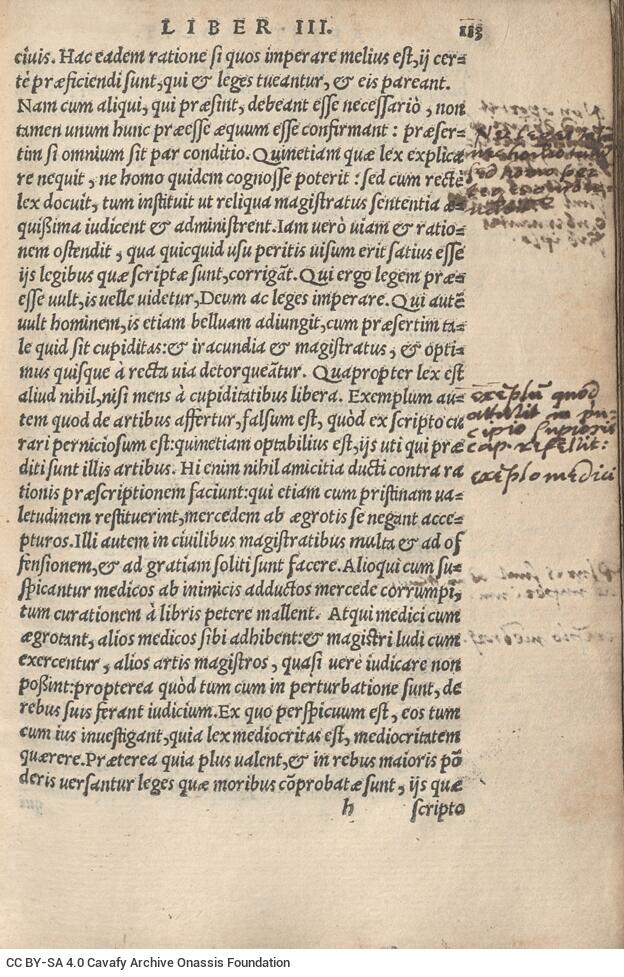 LIBER III. 113
ciuis. Hac eadem ratione si quos imperare melius est, ij cer-
tè præficiendi sunt, qui & leges tueantur, & eis pareant.
Nam cum aliqui, qui præsint, debeant esse necessariò, non
tamen unum hunc præesse æquum esse confirmant: præser-
tim si omnium sit par conditio. Quinetiam quæ lex explica
re nequit, ne homo quidem cognosse poterit: sed cum rectè
lex docuit, tum instituit ut reliqua magistratus sententia æ-
quißima iudicent & administrent. Iam uerò uiam & ratio-
nem ostendit, qua quicquid usu peritis uisum erit satius esse
ijs legibus quæ scriptæ sunt, corrigāt. Qui ergo legem præ-
esse uult, is uelle uidetur, Deum ac leges imperare. Qui autē
uult hominem, is etiam belluam adiungit, cum præsertim ta-
le quid sit cupiditas: & iracundia & magistratus, & opti-
mus quisque à recta uia detorqueātur. Quapropter lex est
aliud nihil, nisi mens à cupiditatibus libera. Exemplum au-
tem quod de artibus affertur, falsum est, quòd ex scripto cu
rari perniciosum est: quinetiam optabilius est, ijs uti qui præ
diti sunt illis artibus. Hi enim nihil amicitia ducti contra ra
tionis præscriptionem faciunt: qui etiam cum pristinam ua-
letudinem restituerint, mercedem ab ægrotis se negant acce-
pturos. Illi autem in ciuilibus magistratibus multa & ad of
fensionem, & ad gratiam soliti sunt facere. Alioqui cum su-
spicantur medicos ab inimicis adductos mercede corrumpi,
tum curationem à libris petere mallent. Atqui medici cum
ægrotant, alios medicos sibi adhibent: & magistri ludi cum
exercentur, alios artis magistros, quasi uerè iudicare non
poßint: propterea quòd tum cum in perturbatione sunt, de
rebus suis ferant iudicium. Ex quo perspicuum est, eos tum
cum ius inuestigant, quia lex mediocritas est, mediocritatem
quærere. Præterea quia plus ualent, & in rebus maioris pō
deris uersantur leges quæ moribus cōprobatæ sunt, ijs quæ
h scripto
exēplū quod
attulit in prī
cipio superioris
cap. refellit:
exēplo medici
CC BY-SA 4.0 Cavafy Archive Onassis Foundation